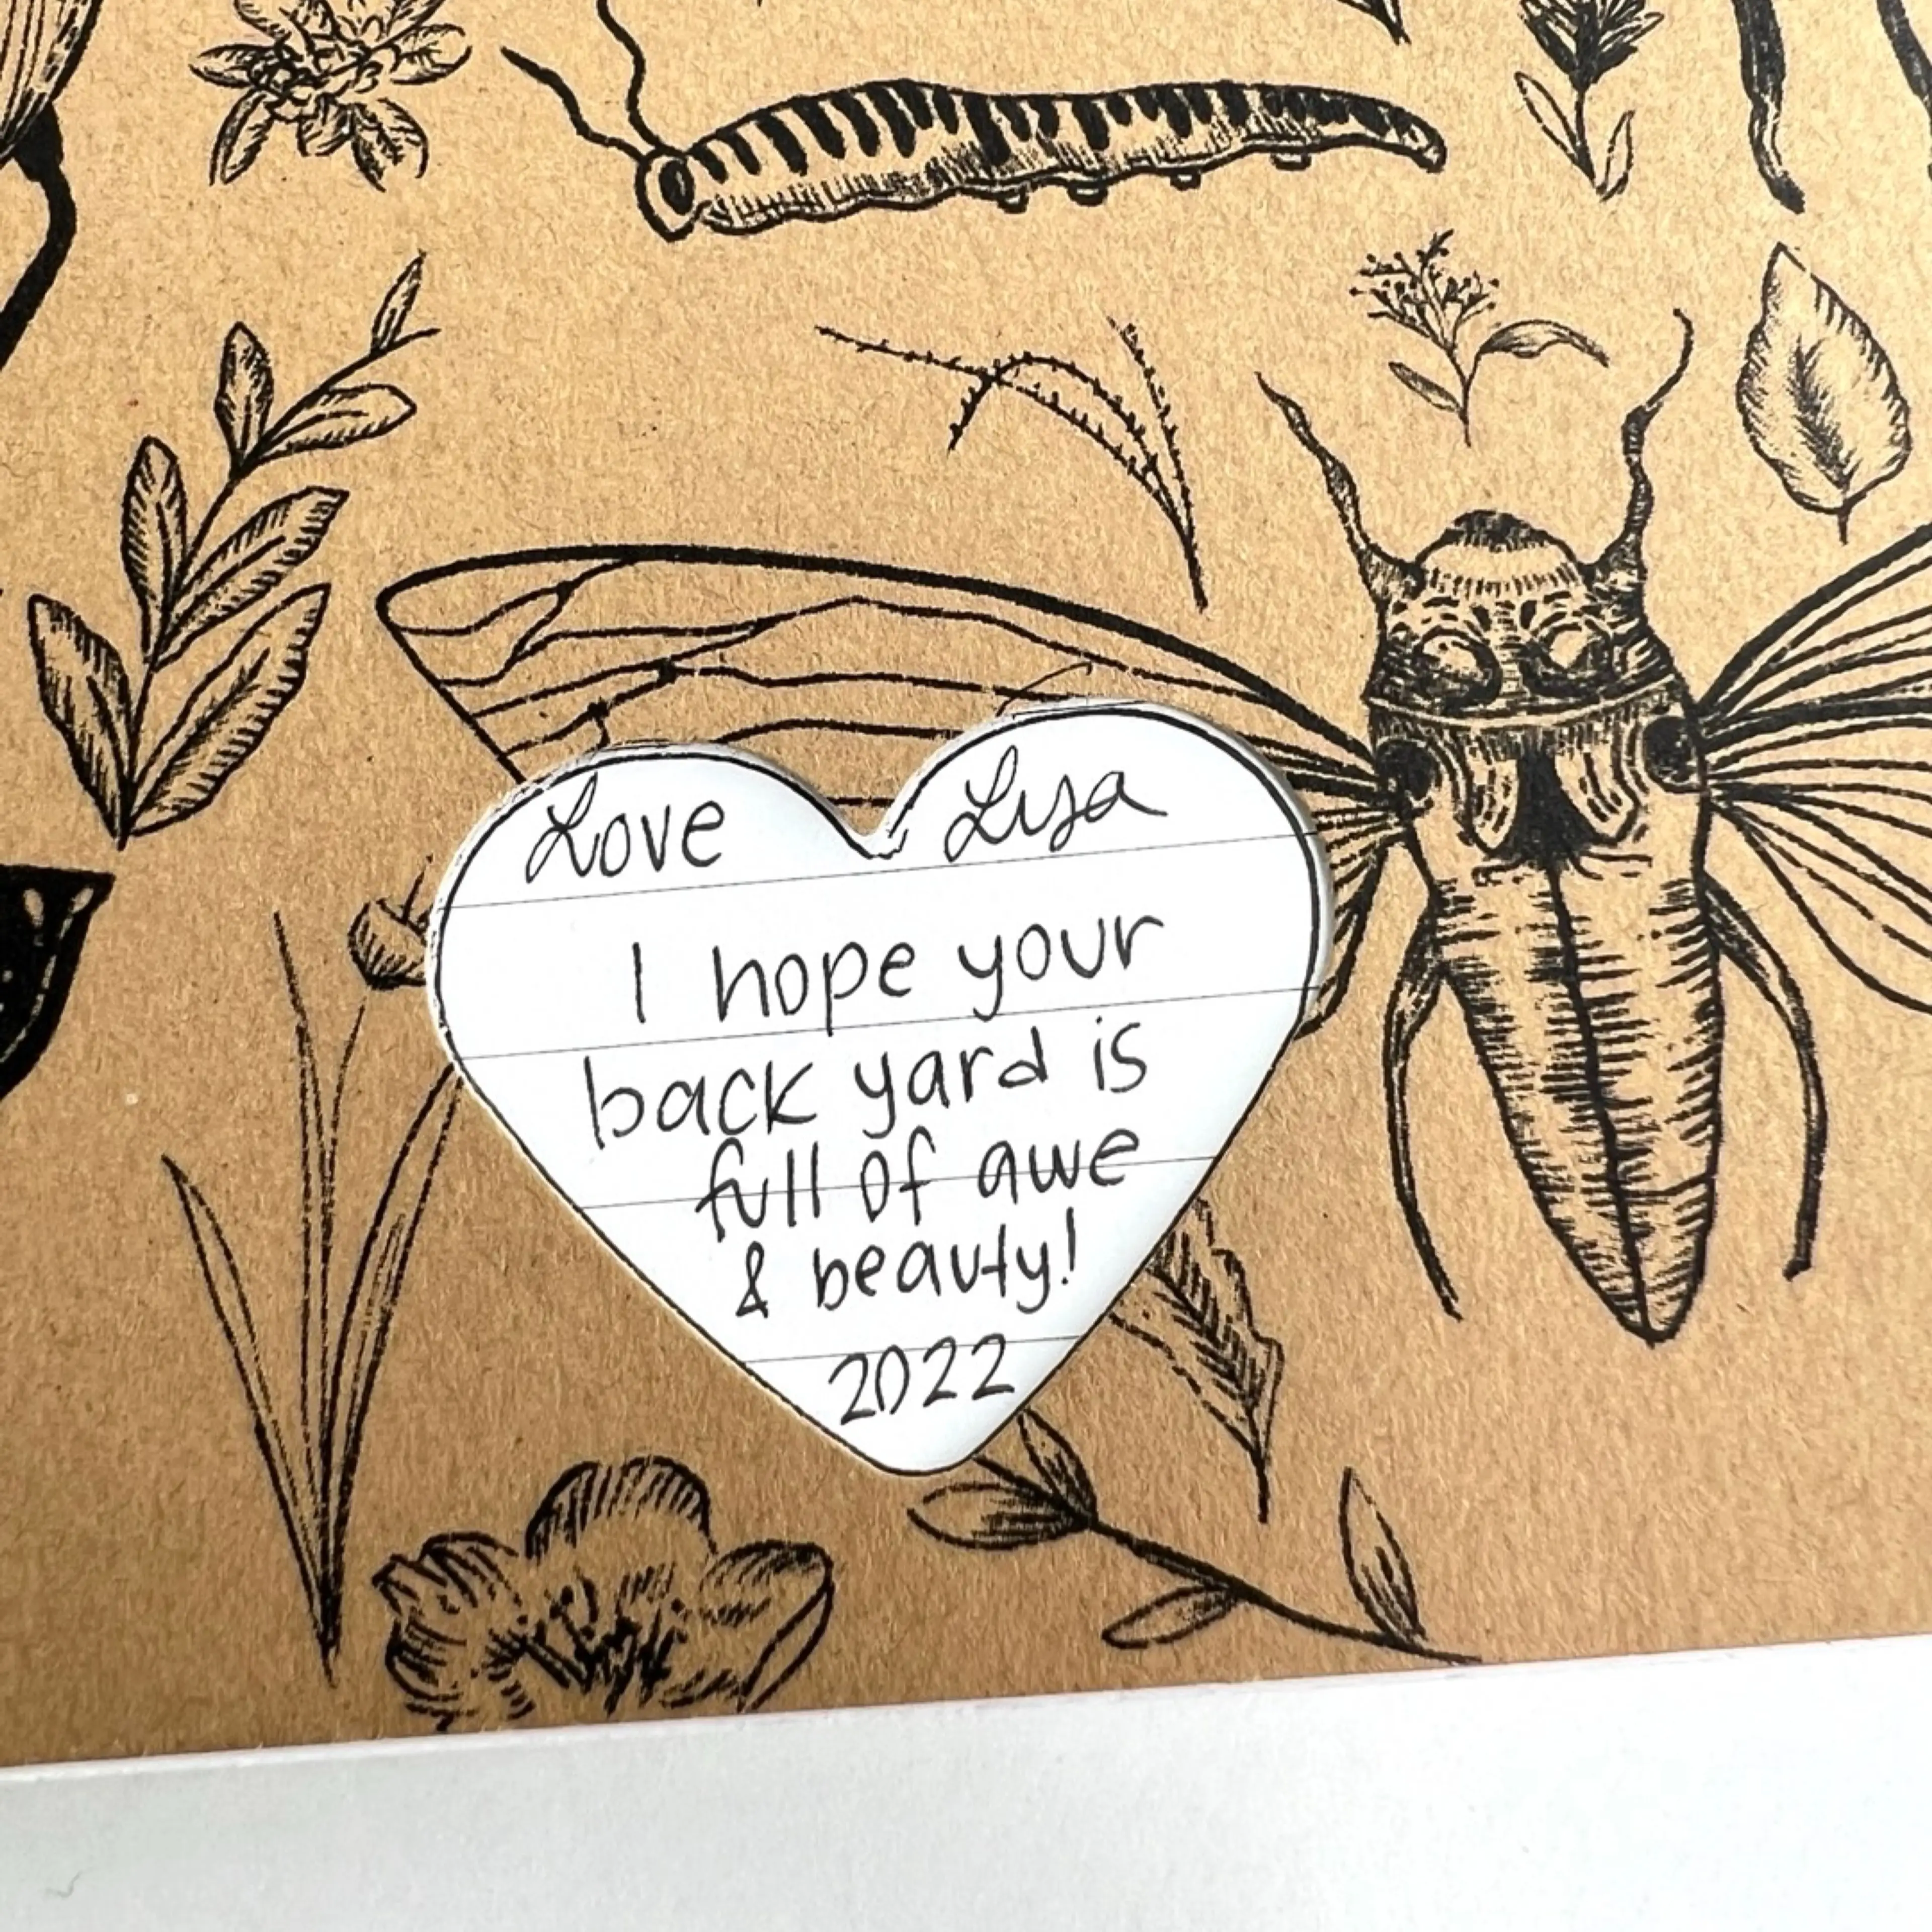 Love Lisa
I hope your
back yard is
full of awe
& beauty!
2022